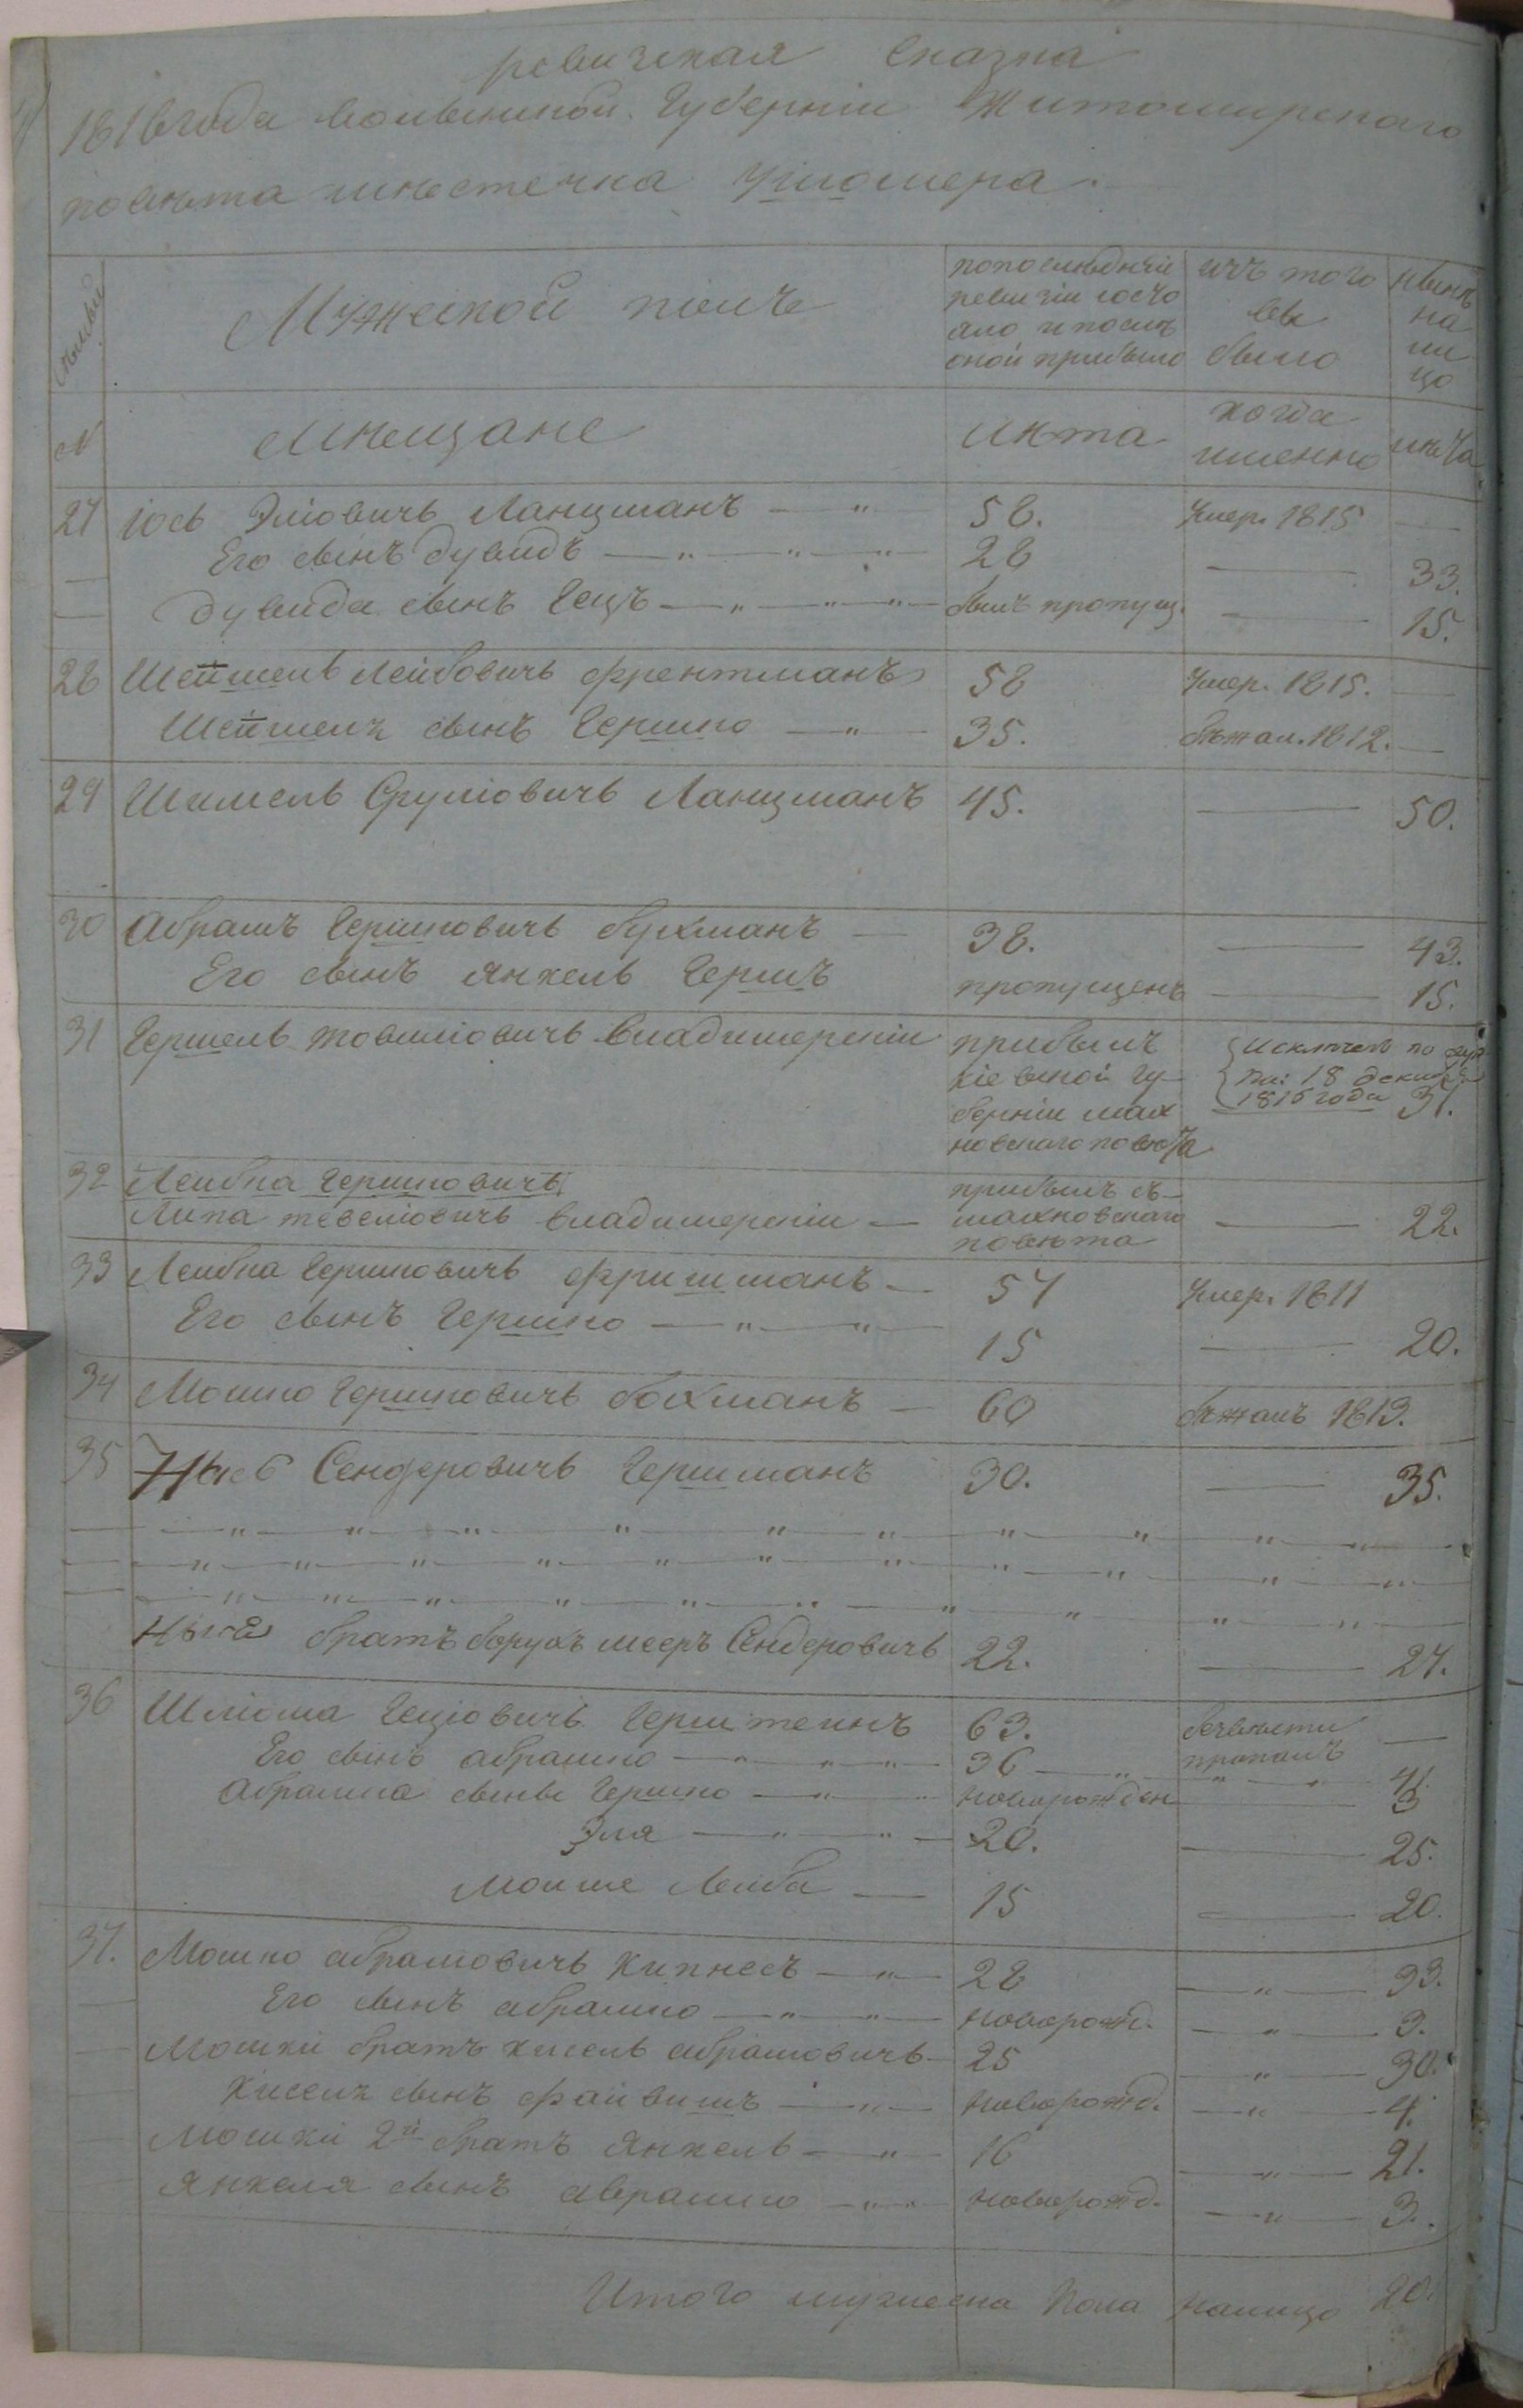 ревизская Сказка
1816 года волынской Губерніи Житомирскаго
повѣта мѣстечка Ушомера.
Мужеской полъ
попослѣдней ревизіи состо яло и послѣ оной прибыло
изъ того вы было
нынѣ на ли цо
N
Мѣщане
лѣта
когда именно
лѣта
27 Іось Эліовичъ Ланцманъ — " — 58. Умер. 1815 —
Его сынъ дувидъ — " — " — " — 28 — 33.
дувида сынъ Гецъ — " — " — " — былъ пропущ. — 15.
28 лейбовичъ Френтманъ 58 Умер. 1815. —
сынъ Гершко — " — 35. бѣжал. 1812. —
29 Шмелъ Сруліовичъ Ланцманъ 45. — 50.
30 Абрамъ Гершковичъ бухманъ — 38. — 43.
Его сынъ Янкель Гершъ пропущенъ — 15.
31 Гершель товиліовичъ Владимерскій прибылъ кіевской гу- берніи мах новскаго повѣта
Исключен по 18 декаб 1816 года 31.
32 Лейбка Гершковичъ
Липа тевеліовичъ владимерскіи — прибылъ съ- махновскаго повѣта — 22.
33 Лейбка Гершковичъ Фришманъ — 57 Умер. 1811
Его сынъ Гершко — " — " — 15 — 20.
34 Мошко Гершковичъ бохманъ — 60 бѣжалъ 1813.
35 Сендеровичъ Гершманъ 30. — 35.
братъ борухъ мееръ Сендеровичъ 22. — 27.
36 Шліома Геціовичъ Герштеинъ 63. безвѣсти пропалъ —
Его сынъ абрашко — " — " — " — 36 — " — " — " — 41.
Абрашка сыны Гершко — " — новорожден — 3
Эля — " — " — 20. — 25.
Мошке Леиба — 15 — 20.
37. Мошко абрамовичъ Кипнесъ — " — 28 — " — 33.
Его сынъ абрашко — " — " — новорожд. — " — 3.
Мошки братъ кисель абрамовичъ — 25 — " — 30.
Киселя сынъ фаивишъ — " — новорожд. — " — 4.
Мошки 2й братъ Янкель — " — 16 — " — 21.
Янкеля сынъ аврашко — " — новорожд. — " — 3.
Итого мужеска пола налицо 20.